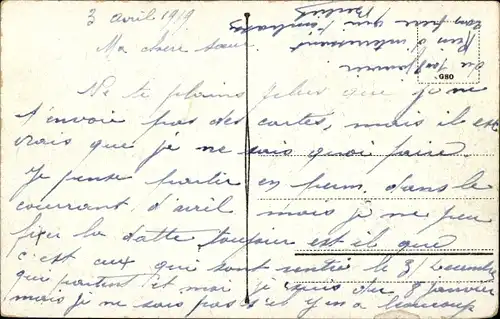 3 avril 1919
Ma chère sœur
Ne te plains plus que je ne
t'envoie pas des cartes, mais il est
vrais que je ne sais quoi faire.
Je pense partir en perm. dans le
courrant d'avril mais je ne peu
fixé la datte, toujour est il que
c'est aux qui sont rentré le 31 Decembre
qui partent et moi je suis du 8 janvier
mais je ne sais pas s'il y en a baucoup
Rien d'interressant
ton frère qui t'embrasse
G80